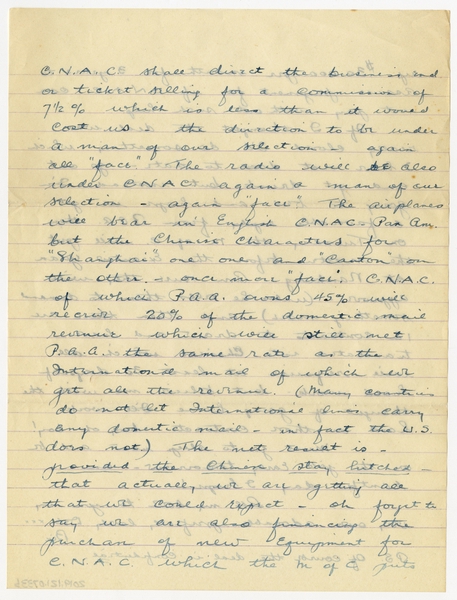 C.N.A.C. shall direct the business end
or ticket selling for a commission of
7½% which is less than it would
cost us - the direction to be under
a man of our selection - again
all "face". The radio will be also
under C.N.A.C. again a man of our
selection - again "face". The airplanes
will bear in English C.N.A.C. Pan Am.
but the Chinese characters for
"Shanghai" on one and "Canton" on
the other. - once more "face". C.N.A.C.
of which P.A.A. owns 45% will
receive 20% of the domestic mail
revenue which will still net
P.A.A. the same rate as the
International mail of which we
get all the revenue. (Many countries
do not let International lines carry
any domestic mail - in fact the U.S.
does not.) The net result is -
provided the Chinese stay hitched -
that actually we are getting all
that we could expect - oh forget to
say we are also financing the
purchase of new equipment for
C.N.A.C. which the M of C. puts